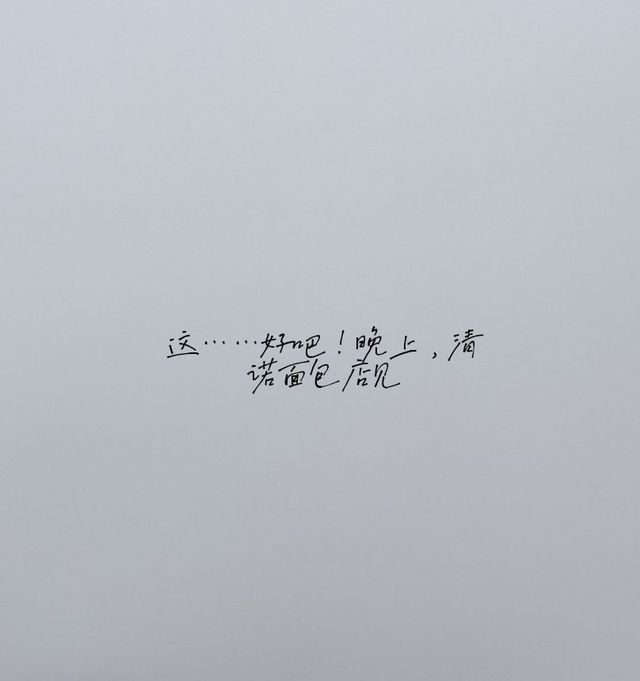 这……好吧！晚上，清
诺面包店见